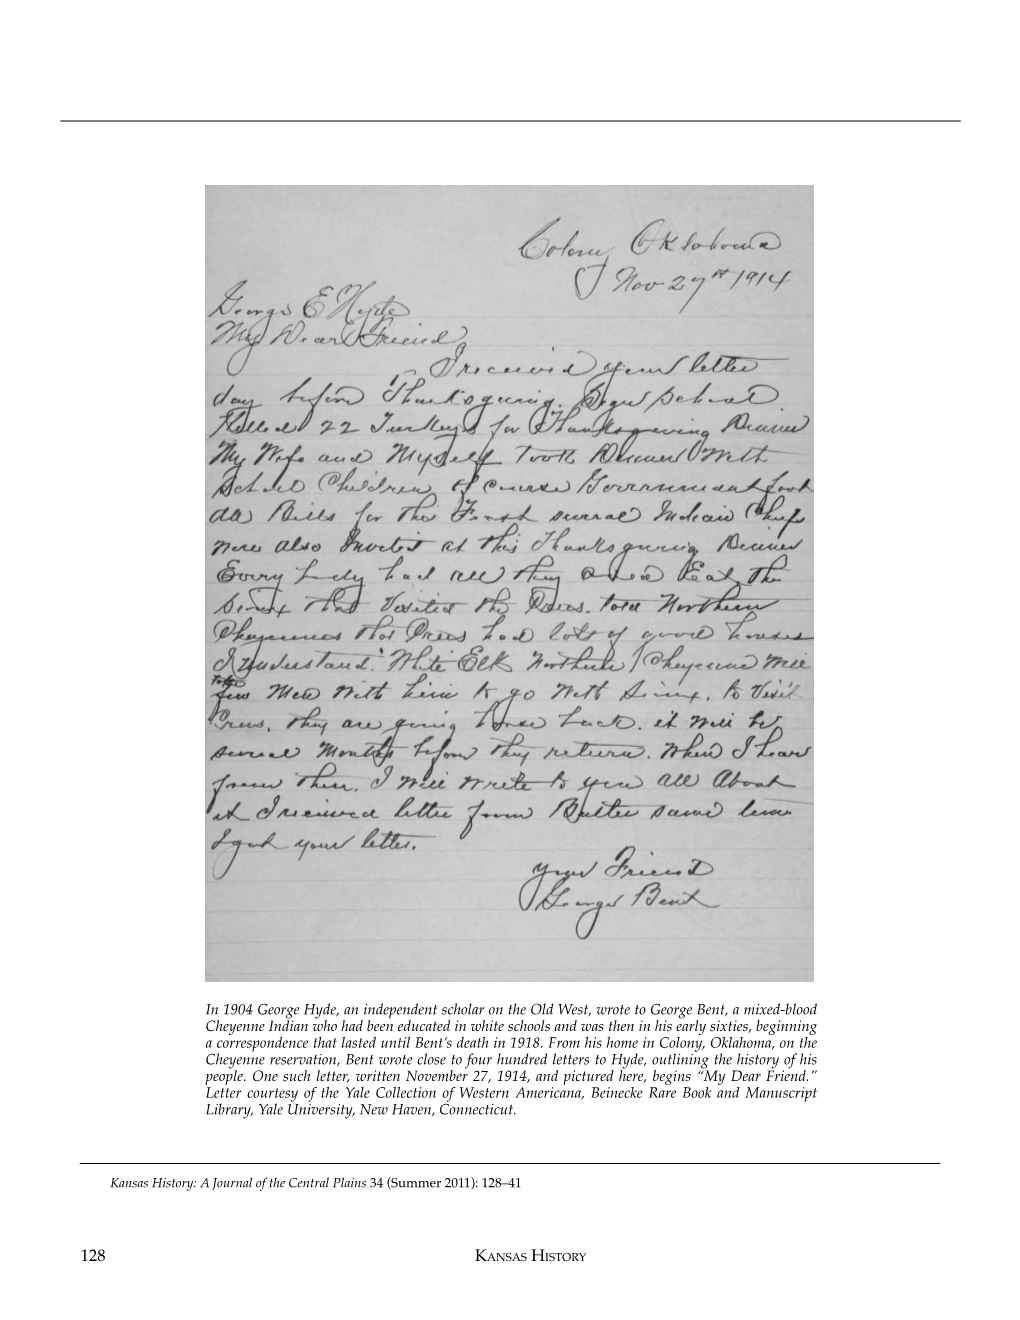 Colony, Oklahoma
Nov 27th 1914
George E Hyde
My Dear Friend
I received your letter
day before Thanksgiving. School
Killed 22 Turkeys for Thanksgiving Dinner
My Wife and Myself Took Dinner With
School Children of course Government foot
all Bills for this Feast several Indian Chiefs
were also Invited at this Thanksgiving Dinner
Every body had all they Eat, The
Sioux that Visited the Crees. told Northern
Cheyennes that Crees had lots of good houses
I understand. White Elk Northern Cheyenne Will
Take
few Men With him to go With Sioux, to Visit
Crees, they are going horse back. it Will be
several Months before they return. When I hear
from them. I Will write to you all About
it I received letter from same time
I got your letter.
your Friend
George Bent
In 1904 George Hyde, an independent scholar on the Old West, wrote to George Bent, a mixed-blood
Cheyenne Indian who had been educated in white schools and was then in his early sixties, beginning
a correspondence that lasted until Bent's death in 1918. From his home in Colony, Oklahoma, on the
Cheyenne reservation, Bent wrote close to four hundred letters to Hyde, outlining the history of his
people. One such letter, written November 27, 1914, and pictured here, begins “My Dear Friend.”
Letter courtesy of the Yale Collection of Western Americana, Beinecke Rare Book and Manuscript
Library, Yale University, New Haven, Connecticut.
Kansas History: A Journal of the Central Plains 34 (Summer 2011): 128–41
128
Kansas History